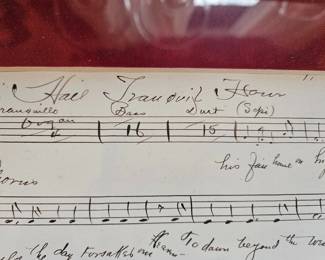 Hail Tranquil Hour
Tranquillo Bass Duet (Sop:)
Organ
16 15
his fair home on
Chorus
the day forsaketh To dawn beyond the